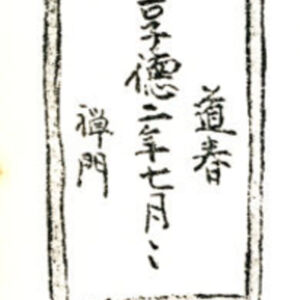 道春
享徳二年七月〻
禅門